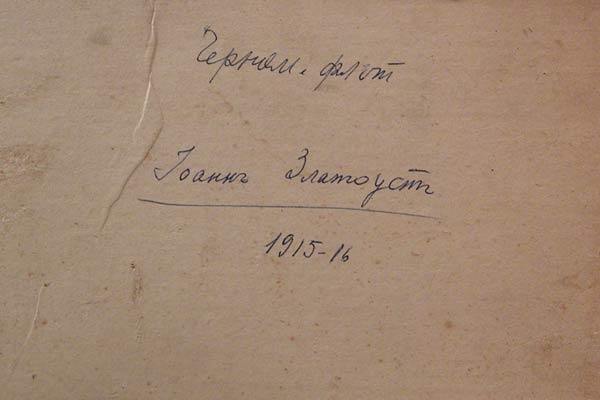 Черном. флот
Іоаннъ Златоустъ
1915-16